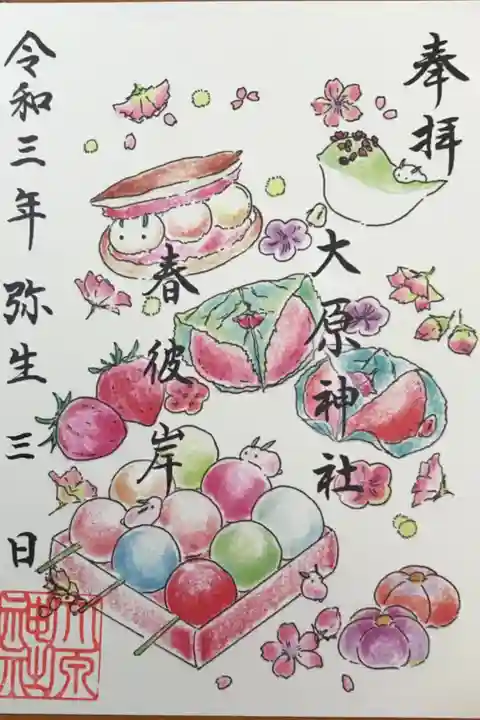 奉拝
大原神社
春彼岸
令和三年弥生三日
大原
神社